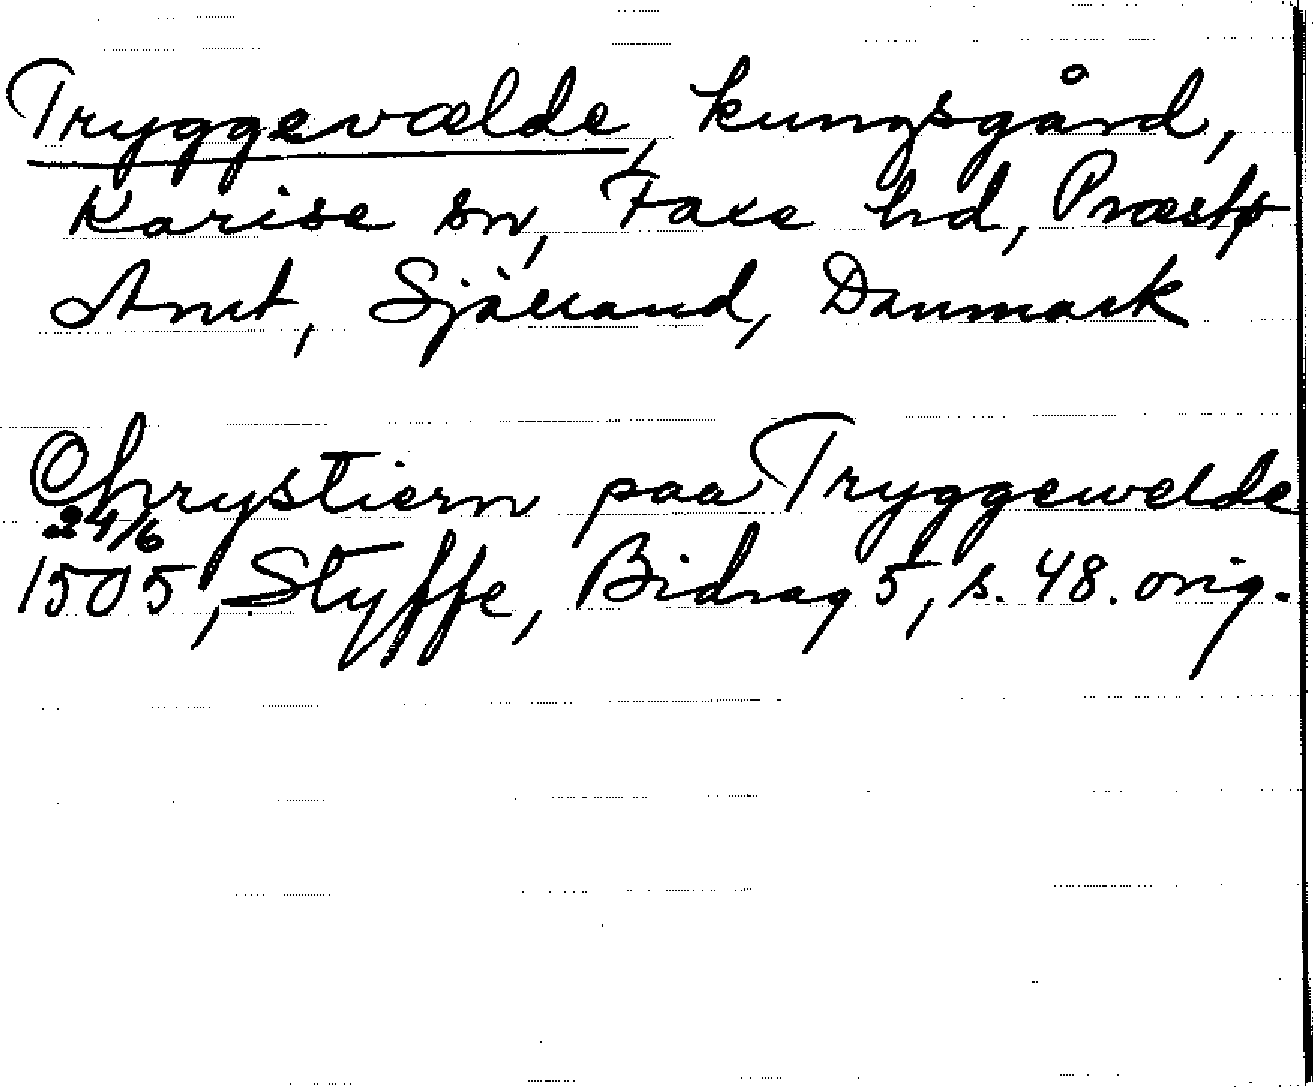 Tryggevælde, kungsgård,
Karise sn, Faxe hd, Præstø
Amt, Själland, Danmark
Chrystiern paa Tryggewelde
24/6
1505, Styffe, Bidrag 5, s. 48. orig.